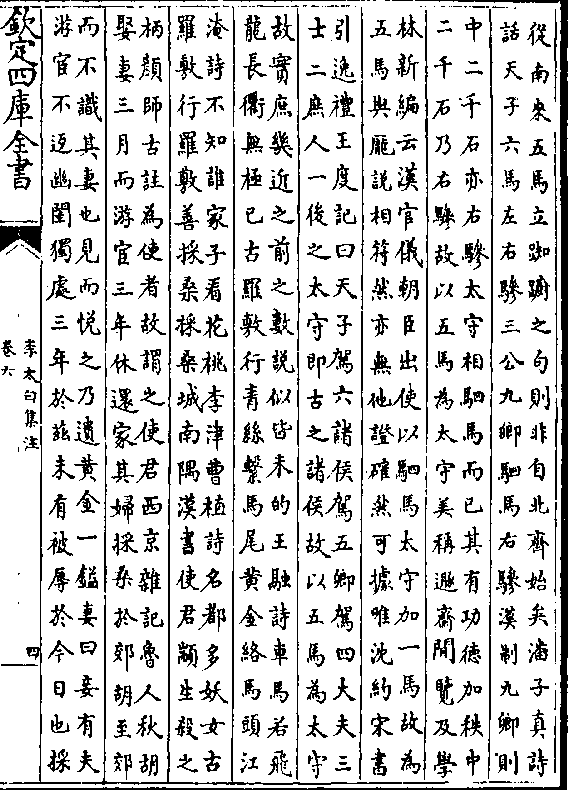 從南來五馬立踟蹰之句則非自北齊始矣潘子真詩
話天子六馬左右驂三公九卿駟馬右驂漢制九卿則
中二千石亦右驂太守相駟馬而已其有功德加秩中
二千石乃右驂故以五馬為太守美稱遯齋閒覽及學
林新編云漢官儀朝臣出使以駟馬太守加一馬故為
五馬與龎説相符然亦無他證確然可據唯沈約宋書
引逸禮王度記曰天子駕六諸侯駕五卿駕四大夫三
士二庶人一後之太守即古之諸侯故以五馬為太守
故實庶幾近之前之數説似皆未的王融詩車馬若飛
龍長衢無極已古羅敷行青絲繫馬尾黄金絡馬頭江
淹詩不知誰家子看花桃李津曹植詩名都多妖女古
羅敷行羅敷善採桑採桑城南隅漢書使君顓生殺之
柄顔師古註為使者故謂之使君西京雜記魯人秋胡
娶妻三月而游宦三年休還家其婦採桑於郊胡至郊
而不識其妻也見而悦之乃遺黄金一鎰妻曰妾有夫
游宦不返幽閨獨處三年於兹未有被辱於今日也採
欽定四庫全書
李太白集注
卷六
四